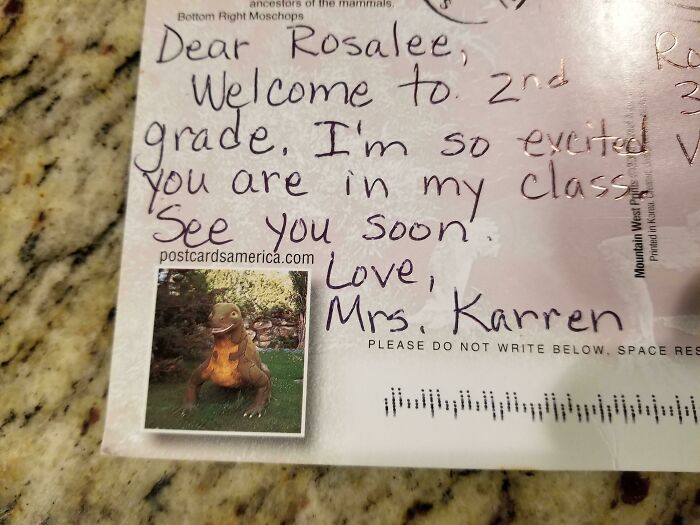 ancestors of the mammals.
Bottom Right Moschops
Dear Rosalee,
Welcome to 2nd
grade. I'm so excited
you are in my class.
See you soon.
postcardsamerica.com
Love,
Mrs. Karren
PLEASE DO NOT WRITE BELOW, SPACE RES
Mountain West Prints
Printed in Korea
Ro
3
V